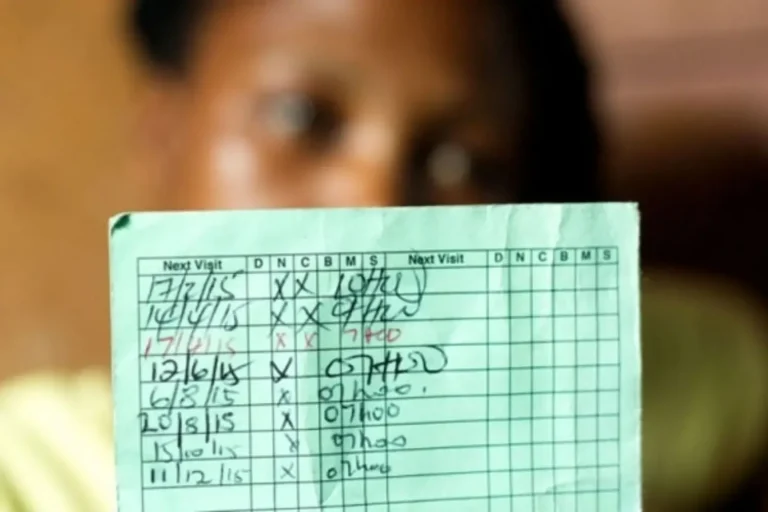 Next Visit D N C B M S Next Visit D N C B M S
17/2/15 X X 10H00
14/4/15 X X 9H00
17/ /15 x x 7H00
12/6/15 X 07H00
6/8/15 x 07h00.
20/8/15 X 07h00
15/10/15 x 07h00
11/12/15 X 07h00